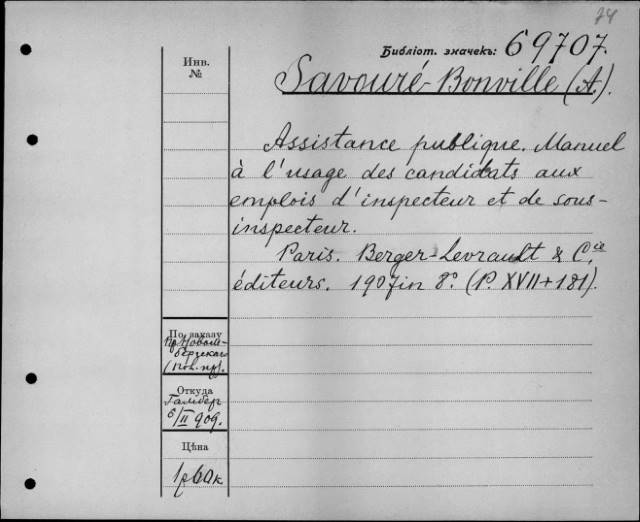 74
Библіот. значекъ: 69707.
Инв.
№
Savouré-Bonville (A.).
Assistance publique. Manuel
à l'usage des candidats aux
emplois d'inspecteur et de sous-
inspecteur.
Paris. Berger-Levrault & Cie.
éditeurs. 1907 in 8° (P. XVII+181).
По заказу
Откуда
6/II 909.
Цѣна
1р60к